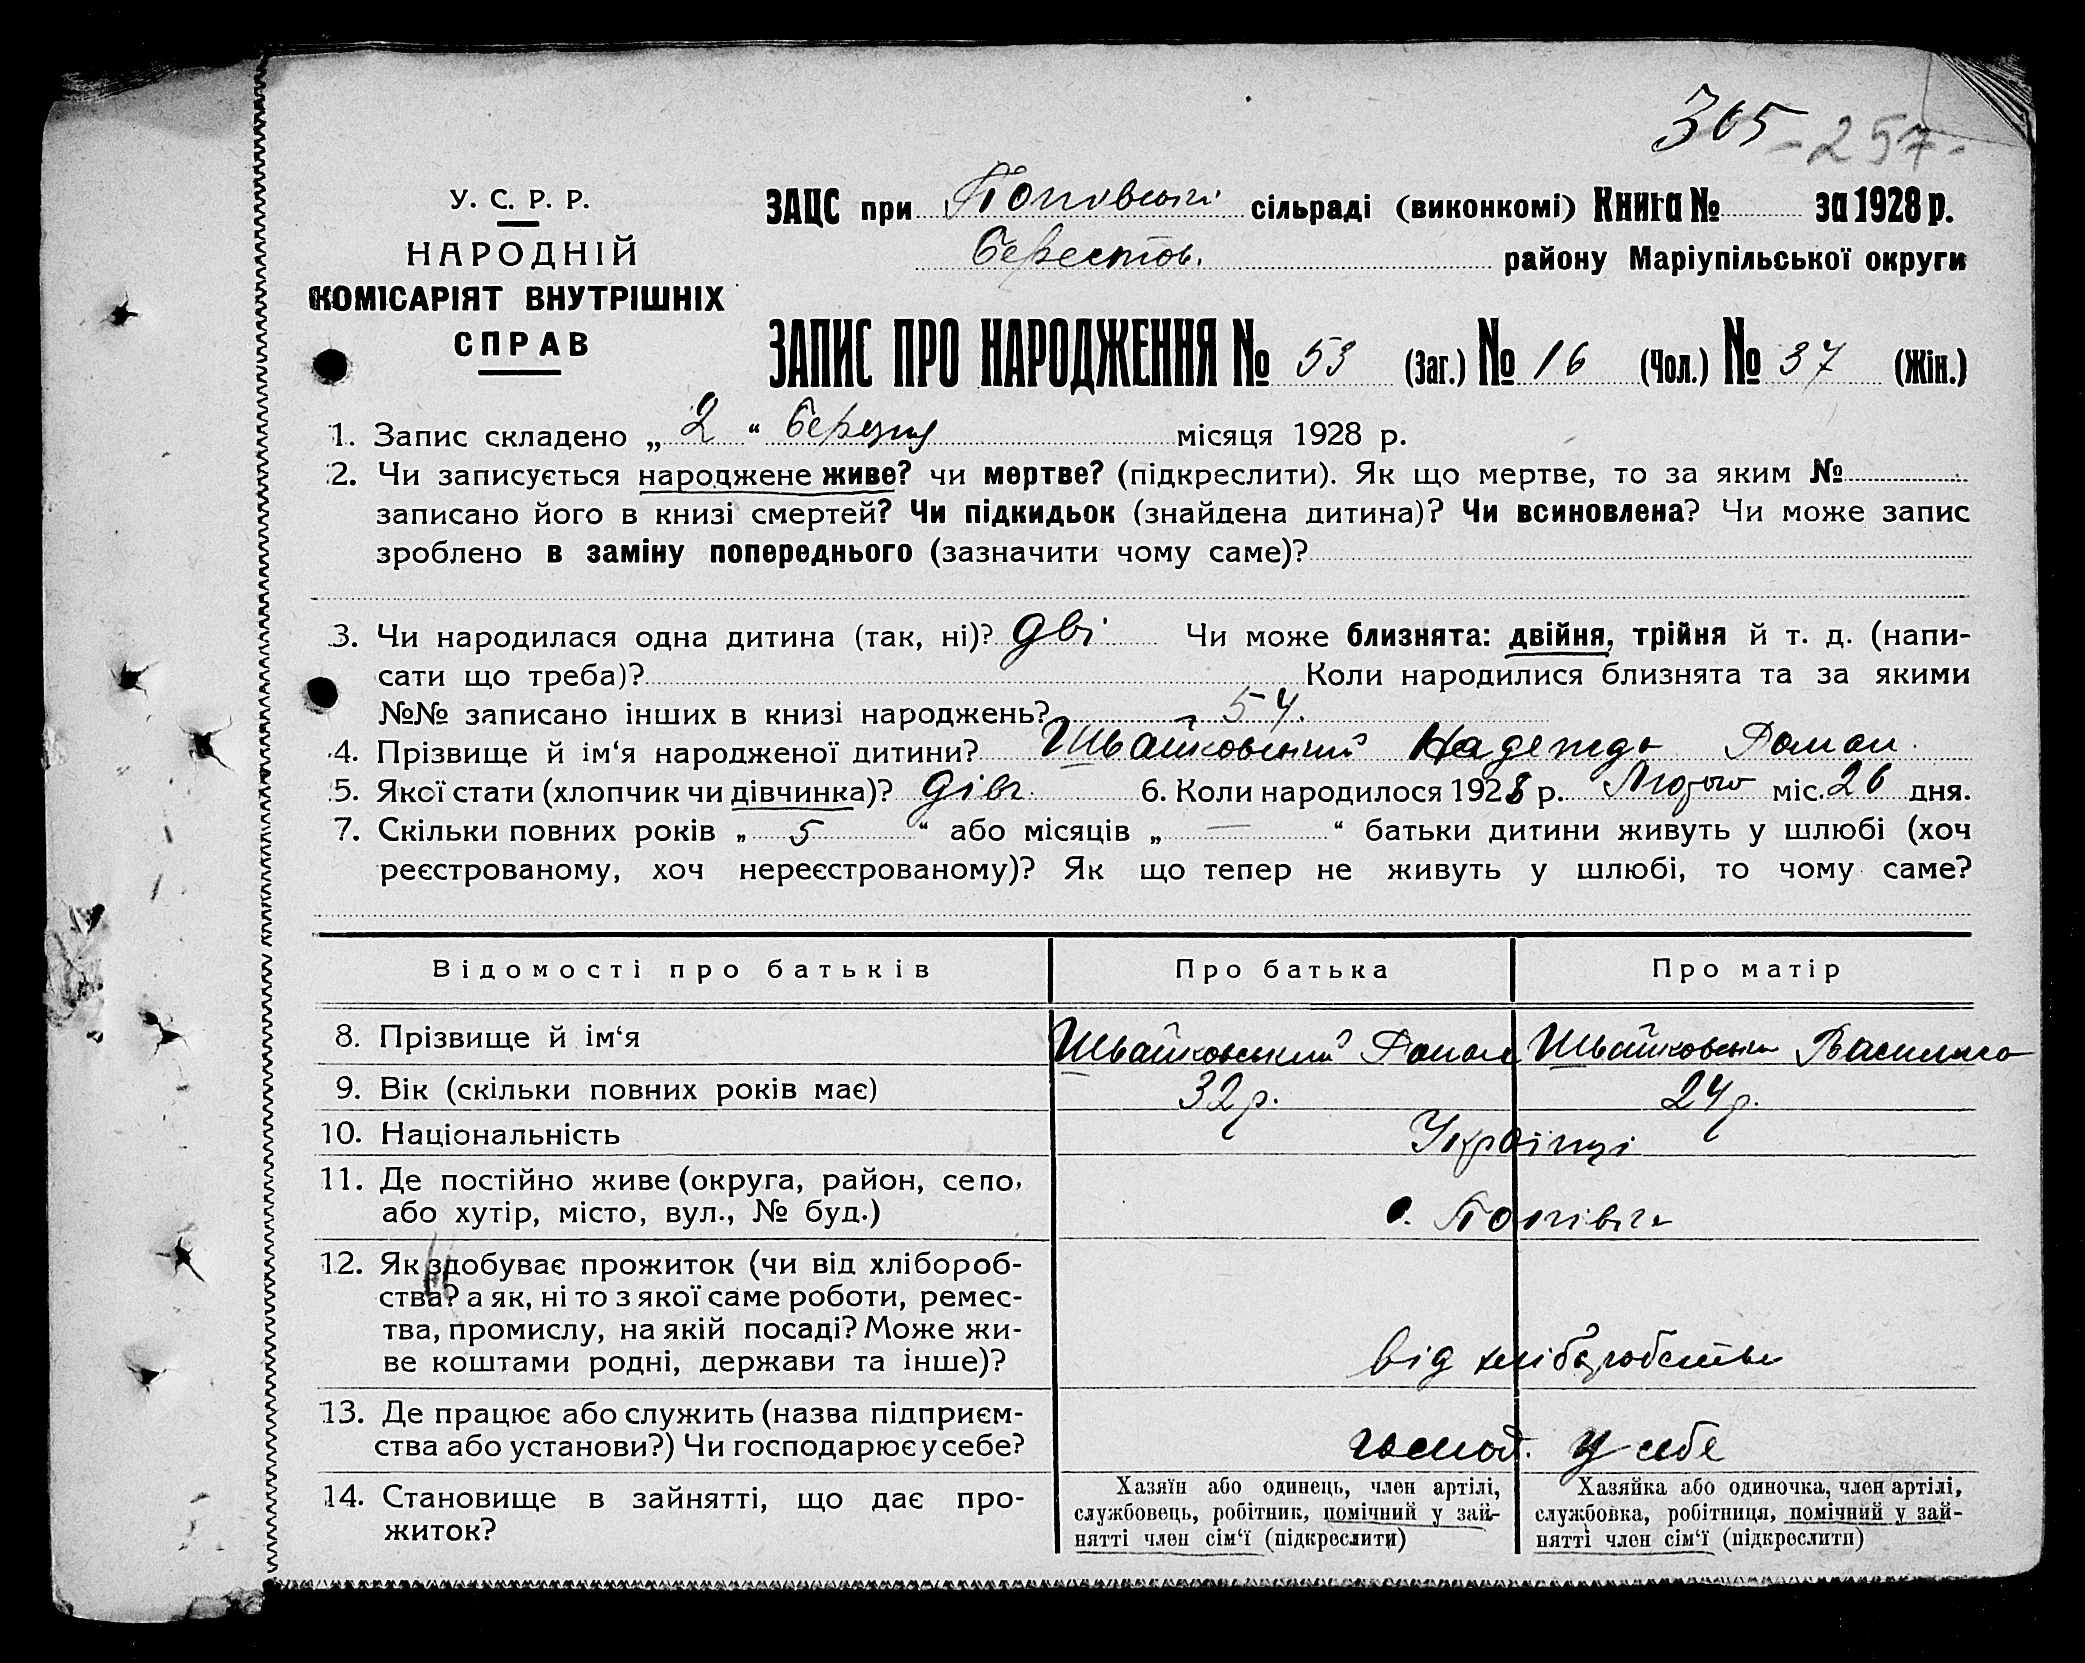 365 - 257 -
У. С. Р. Р.
НАРОДНІЙ
КОМІСАРІЯТ ВНУТРІШНІХ
СПРАВ
ЗАЦС при Попівській сільраді (виконкомі) Книга № за 1928 р.
Берестов. району Маріупільської округи
ЗАПИС ПРО НАРОДЖЕННЯ № 53 (Заг.) № 16 (Чол.) № 37 (Жін.)
1. Запис складено „ 2 “ Березня місяця 1928 р.
2. Чи записується народжене живе? чи мертве? (підкреслити). Як що мертве, то за яким №
записано його в книзі смертей? Чи підкидьок (знайдена дитина)? Чи всиновлена? Чи може запис
зроблено в заміну попереднього (зазначити чому саме)?
3. Чи народилася одна дитина (так, ні)? дві Чи може близнята: двійня, трійня й т. д. (напи-
сати що треба)? Коли народилися близнята та за якими
№№ записано інших в книзі народжень? 54.
4. Прізвище й ім‘я народженої дитини? Швайковський Надежда Роман.
5. Якої стати (хлопчик чи дівчинка)? дівч. 6. Коли народилося 1928 р. Лютого міс. 26 дня.
7. Скільки повних років „ 5 “ або місяців „ — “ батьки дитини живуть у шлюбі (хоч
реєстрованому, хоч нереєстрованому)? Як що тепер не живуть у шлюбі, то чому саме?
Відомості про батьків Про батька Про матір
8. Прізвище й ім‘я Швайковський Роман Швайковська Василиса
9. Вік (скільки повних років має) 32 р. 24 р.
10. Національність Українці
11. Де постійно живе (округа, район, село,
або хутір, місто, вул., № буд.) с. Попівка
12. Як здобуває прожиток (чи від хлібороб-
ства? а як, ні то з якої саме роботи, ремес-
тва, промислу, на якій посаді? Може жи-
ве коштами родні, держави та інше)? від хліборобства
13. Де працює або служить (назва підприєм-
ства або установи?) Чи господарює у себе? господ. у себе
14. Становище в зайнятті, що дає про-
житок?
Хазяїн або одинець, член артілі,
службовець, робітник, помічний у зай-
нятті член сім‘ї (підкреслити)
Хазяйка або одиночка, член артілі,
службовка, робітниця, помічний у зай-
нятті член сім‘ї (підкреслити)